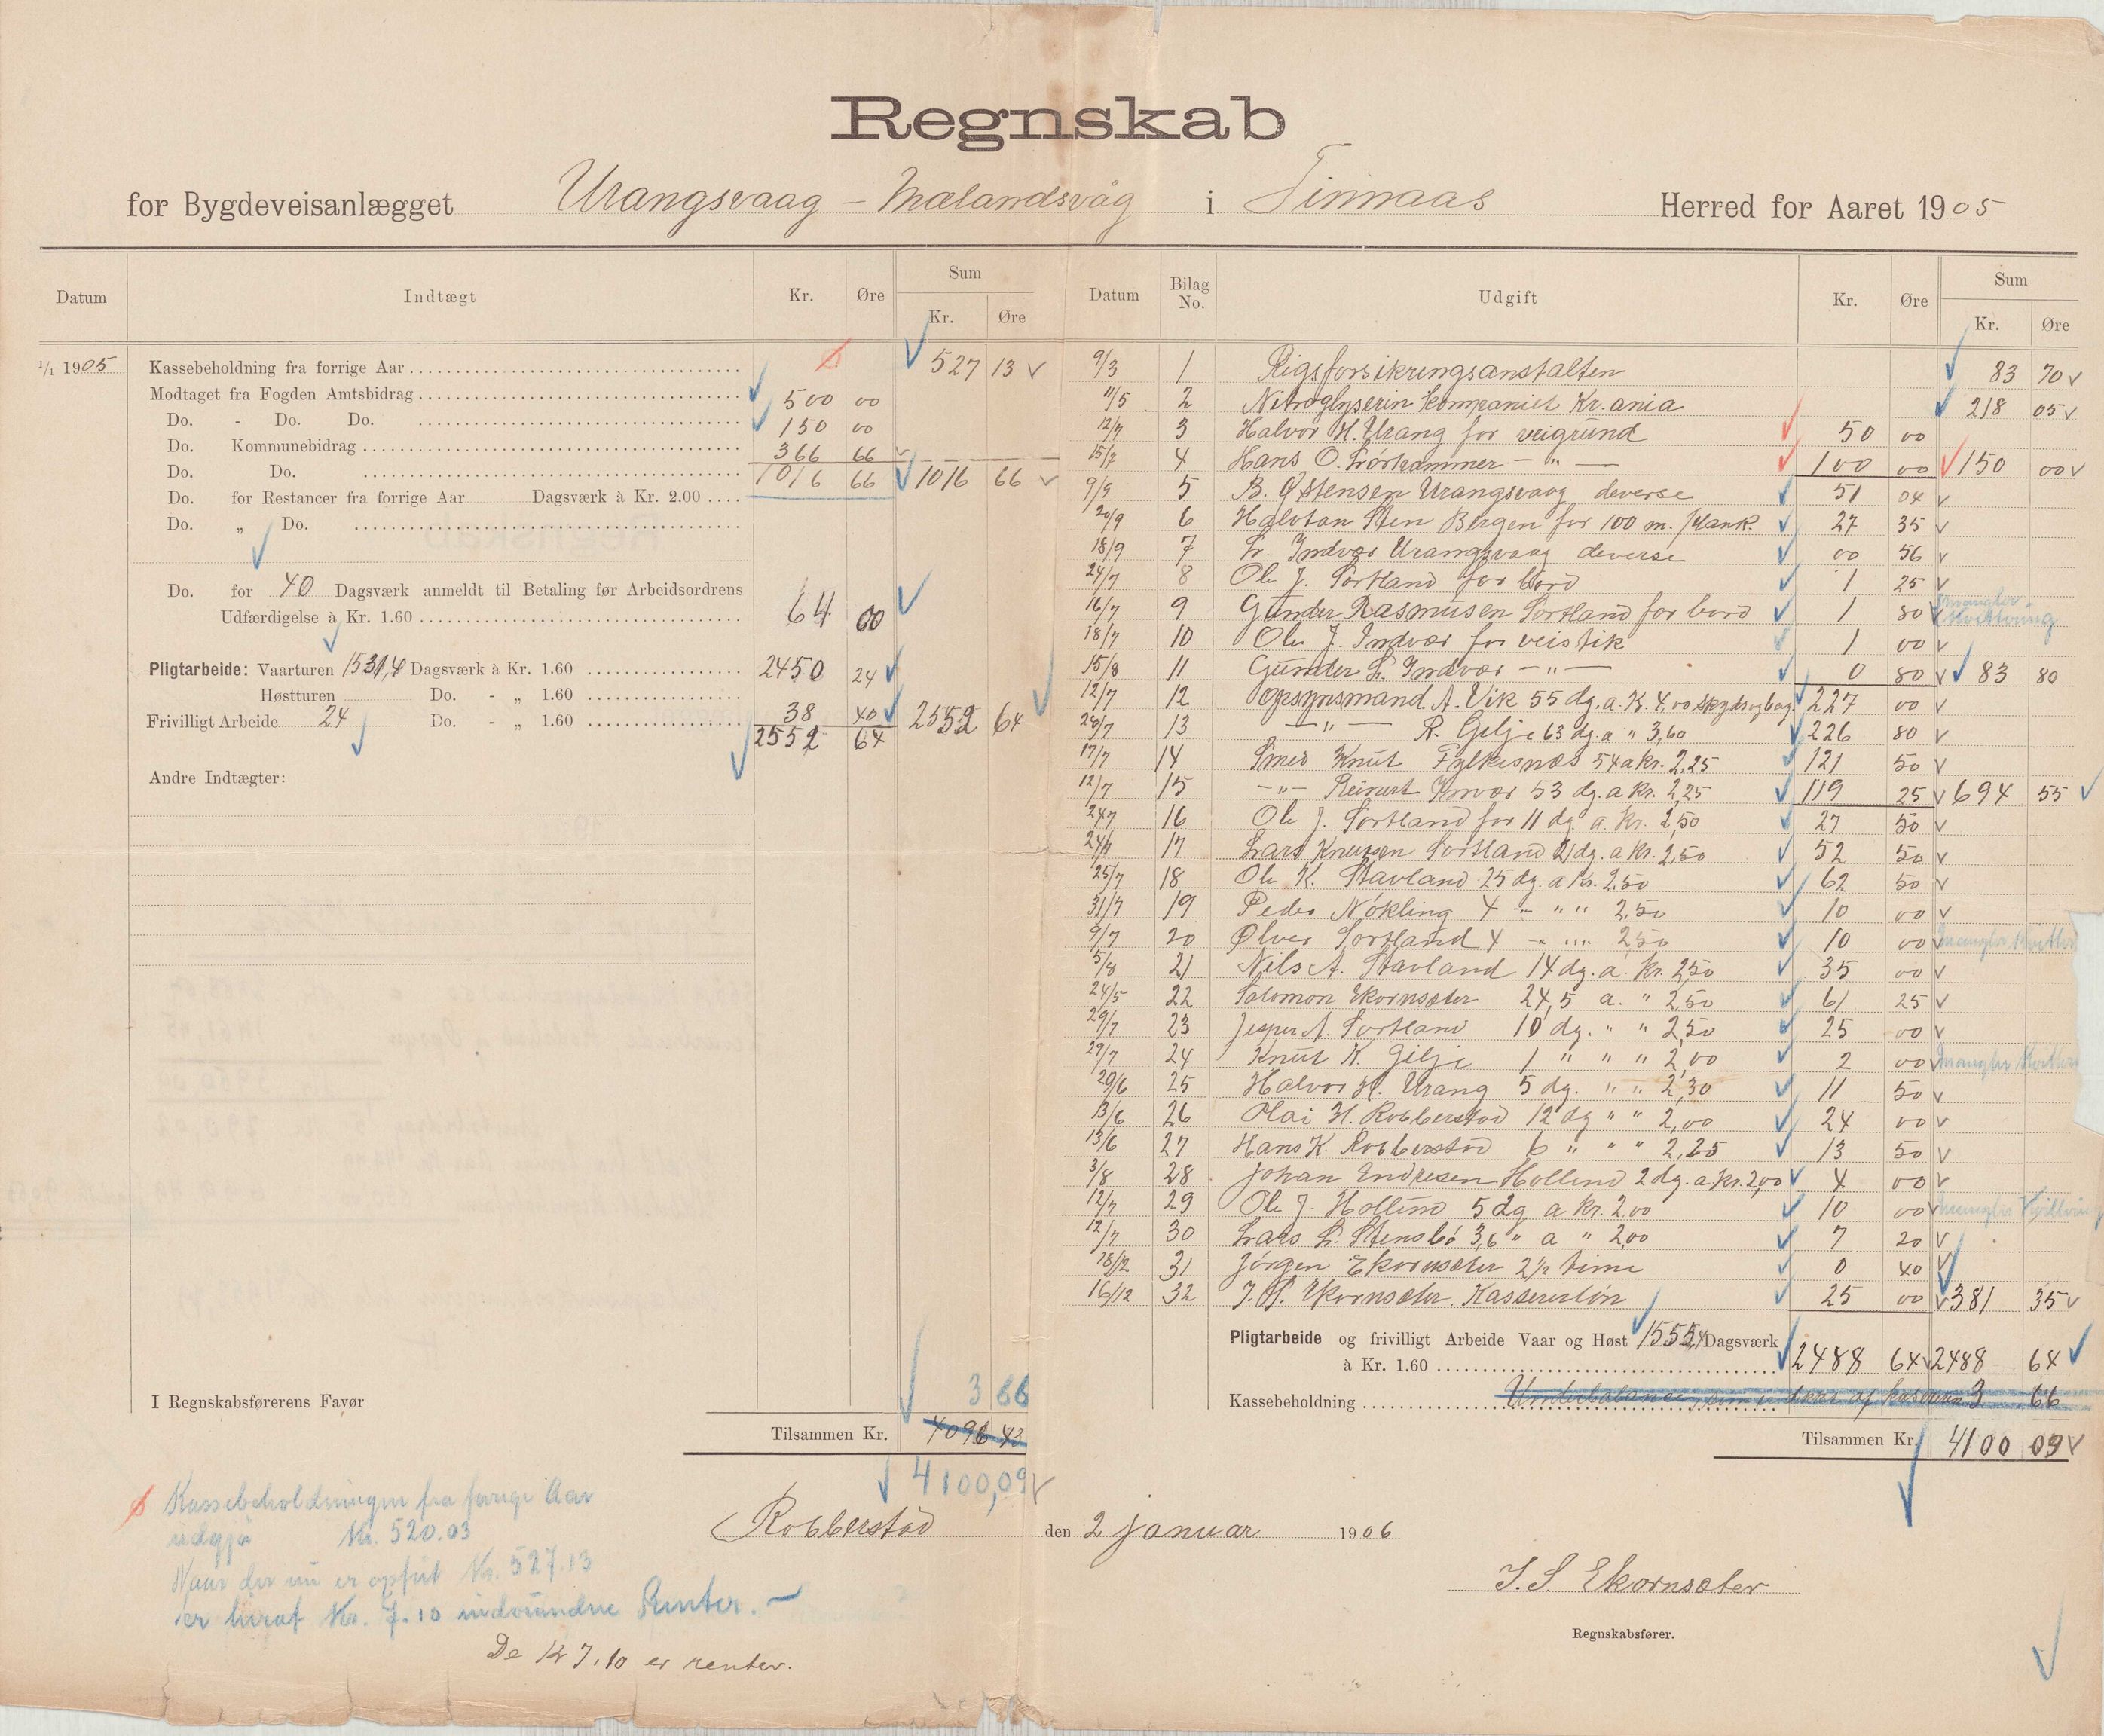 Regnskab
for Bygdeveisanlægget Urangsvaag - Mælandsvåg i Finnaas Herred for Aaret 1905
Datum Indtægt Kr. Øre Sum Kr. Øre
1/1 1905 Kassebeholdning fra forrige Aar 527 13
Modtaget fra Fogden Amtsbidrag 500 00
Do. - Do. Do. 150 00
Do. Kommunebidrag 366 66
Do. Do. 1016 66 1016 66
Do. for Restancer fra forrige Aar Dagsværk à Kr. 2.00
Do. „ Do.
Do. for 40 Dagsværk anmeldt til Betaling før Arbeidsordrens
Udfærdigelse à Kr. 1.60 64 00
Pligtarbeide: Vaarturen 1531,4 Dagsværk à Kr. 1.60 2450 24
Høstturen Do. - „ 1.60
Frivilligt Arbeide 24 Do. - „ 1.60 38 40 2552 64
2552 64
Andre Indtægter:
I Regnskabsførerens Favør 3 66
Tilsammen Kr. 4096 43
4100,09
Datum Bilag No. Udgift Kr. Øre Sum Kr. Øre
9/3 1 Rigsforsikringsanstalten 83 70
11/5 2 Nitroglyserin kompaniet Kr.ania 218 05
12/7 3 Halvor H. Urang for veigrund 50 00
15/7 4 Hans O. Lørhammer - " - 100 00 150 00
9/9 5 B. Østensen Urangsvaag deverse 51 04
20/9 6 Halvtan Sten Bergen for 100 m. plank. 27 35
18/9 7 L. Indvær Urangsvaag deverse 00 56
24/7 8 Ole J. Sortland for bord 1 25
16/7 9 Gunder Rasmusen Sortland for bord 1 80 mangler Kvittering
18/7 10 Ole J. Indvær for veistik 1 00
15/8 11 Gunder L. Indvær - " - 0 80 83 80
12/7 12 opsynsmand A. Vik 55 dg. a. K. 4,00 skyds og bog. 227 00
28/7 13 - " - R. Gilje 63 dg. a " 3,60 226 80
17/7 14 Smed Knut Fylkesnæs 54 a kr. 2,25 121 50
12/7 15 - " - Reinert Invær 53 dg. a kr. 2,25 119 25 694 55
24/7 16 Ole J. Sortland for 11 dg. a. kr. 2,50 27 50
24/7 17 Lars Knutsen Sortland 21 dg. a kr. 2,50 52 50
25/7 18 Ole K. Stavland 25 dg. a Kr. 2,50 62 50
31/7 19 Peder Nøkling 4 - " " 2,50 10 00
9/7 20 Ølver Sortland 4 - " " 2,50 10 00 mangler Kvitter
5/8 21 Nils A. Stavland 14 dg. a. kr. 2,50 35 00
24/5 22 Salomon Ekornsæter 24,5 a. " 2,50 61 25
29/7 23 Jesper A. Sortland 10 dg. " " 2,50 25 00
29/7 24 Knut K. Gilje 1 " " " 2,00 2 00 mangler Kvitter
20/6 25 Halvor H. Urang 5 dg. " " 2,30 11 50
13/6 26 Olai H. Robberstad 12 dg " " 2,00 24 00
13/6 27 Hans K. Robberstad 6 " " " 2,25 13 50
3/8 28 Johan Endresen Hollend 2 dg. a kr. 2,00 4 00
12/7 29 Ole J. Hollend 5 dg a kr. 2,00 10 00 mangler Kvittering
12/7 30 Lars L. Stensbø 3,6 " a " 2,00 7 20
18/12 31 Jørgen Ekornsæter 2 1/2 time 0 40
16/12 32 J. S. Ekornsæter. Kassererløn 25 00 381 35
Pligtarbeide og frivilligt Arbeide Vaar og Høst 1555,4 Dagsværk
à Kr. 1.60 2488 64 2488 64
Kassebeholdning Underbalance, som er lånt af kassereren 3 66
Tilsammen Kr. 4100 09
ø Kassebeholdningen fra forrige Aar
udgjør Kr. 520.03
Naar der nu er opført Kr. 527.13
er heraf Kr. 7.10 indvundne Renter. -
De Kr 7,10 er renter.
Robberstad den 2 januar 1906
J. S Ekornsæter
Regnskabsfører.